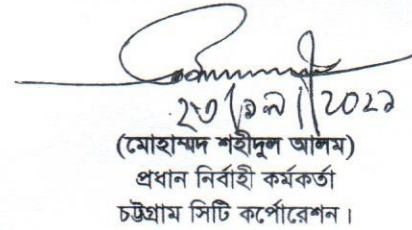 (মোহাম্মদ শহীদুল আলম)
প্রধান নির্বাহী কর্মকর্তা
চট্টগ্রাম সিটি কর্পোরেশন।